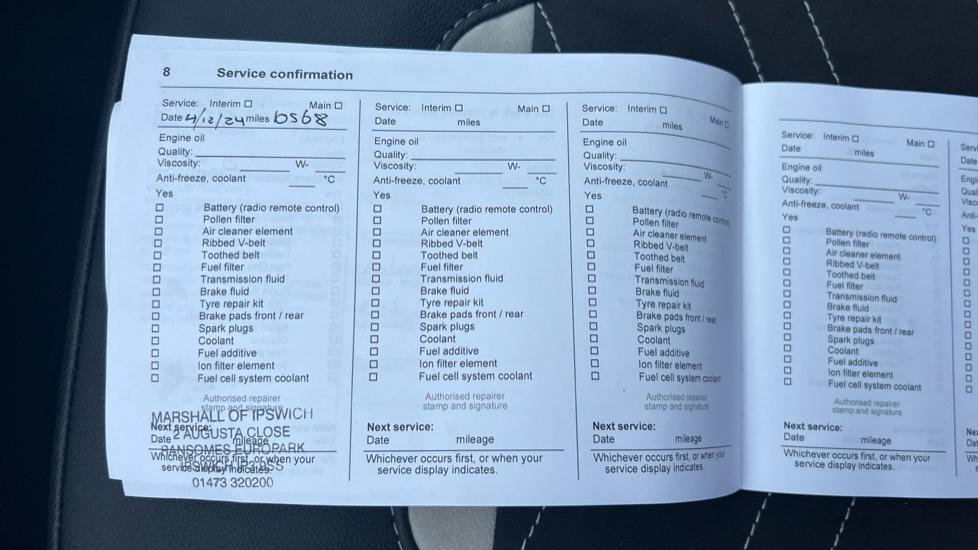 8 Service confirmation
Service: Interim Main
Date 4/12/24 miles
Engine oil
Quality:
Viscosity: W-
Anti-freeze, coolant °C
Yes
Battery (radio remote control)
Pollen filter
Air cleaner element
Ribbed V-belt
Toothed belt
Fuel filter
Transmission fluid
Brake fluid
Tyre repair kit
Brake pads front / rear
Spark plugs
Coolant
Fuel additive
Ion filter element
Fuel cell system coolant
Authorised repairer
stamp and signature
MARSHALL OF IPSWICH
Next service:
2 AUGUSTA CLOSE
Date mileage
RANSOMES EUROPARK
Whichever occurs first, or when your
service display indicates.
01473 320200
Service: Interim Main
Date miles
Engine oil
Quality:
Viscosity: W-
Anti-freeze, coolant °C
Yes
Battery (radio remote control)
Pollen filter
Air cleaner element
Ribbed V-belt
Toothed belt
Fuel filter
Transmission fluid
Brake fluid
Tyre repair kit
Brake pads front / rear
Spark plugs
Coolant
Fuel additive
Ion filter element
Fuel cell system coolant
Authorised repairer
stamp and signature
Next service:
Date mileage
Whichever occurs first, or when your
service display indicates.
Service: Interim Main
Date miles
Engine oil
Quality:
Viscosity: W-
Anti-freeze, coolant °C
Yes
Battery (radio remote control)
Pollen filter
Air cleaner element
Ribbed V-belt
Toothed belt
Fuel filter
Transmission fluid
Brake fluid
Tyre repair kit
Brake pads front / rear
Spark plugs
Coolant
Fuel additive
Ion filter element
Fuel cell system coolant
Authorised repairer
stamp and signature
Next service:
Date mileage
Whichever occurs first, or when your
service display indicates.
Service: Interim Main
Date miles
Engine oil
Quality:
Viscosity: W-
Anti-freeze, coolant °C
Yes
Battery (radio remote control)
Pollen filter
Air cleaner element
Ribbed V-belt
Toothed belt
Fuel filter
Transmission fluid
Brake fluid
Tyre repair kit
Brake pads front / rear
Spark plugs
Coolant
Fuel additive
Ion filter element
Fuel cell system coolant
Authorised repairer
stamp and signature
Next service:
Date mileage
Whichever occurs first, or when your
service display indicates.